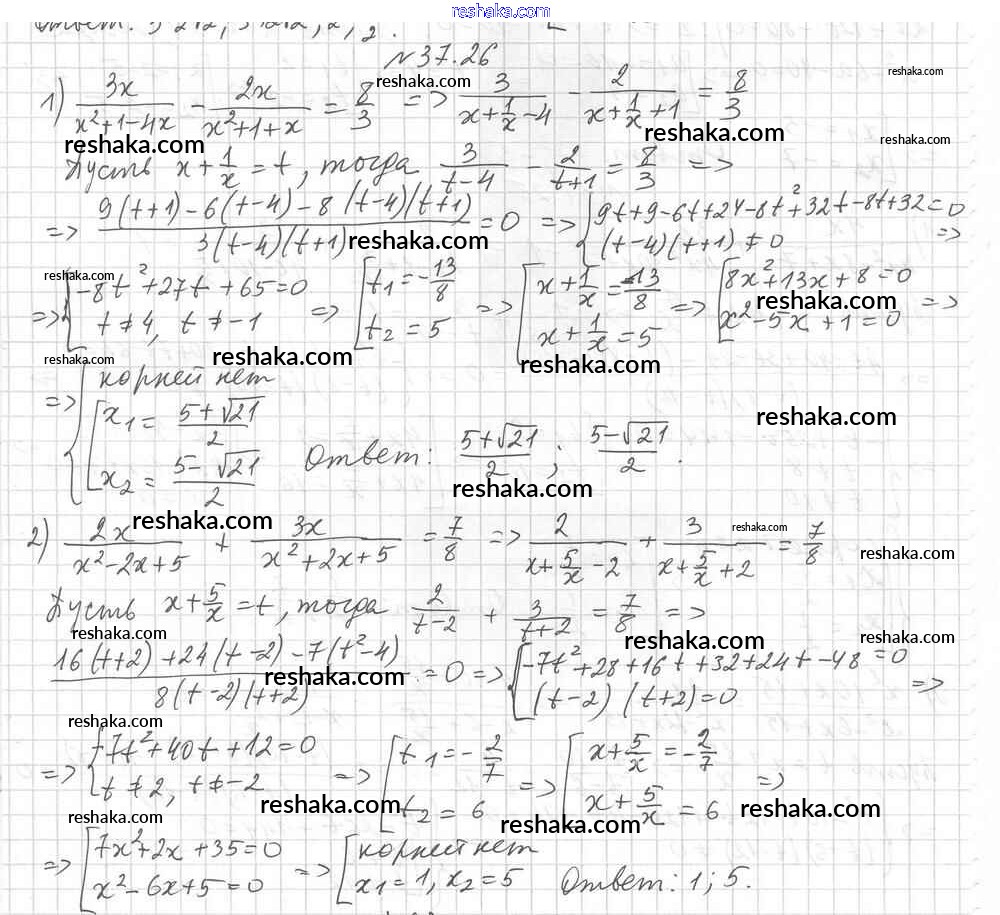 reshaka.com
Ответ:
№37.26
1) 3x/(x²+1-4x) - 2x/(x²+1+x) = 8/3 => 3/(x+1/x-4) - 2/(x+1/x+1) = 8/3
reshaka.com reshaka.com reshaka.com reshaka.com reshaka.com
Пусть x+1/x=t, тогда 3/(t-4) - 2/(t+1) = 8/3 =>
=> (9(t+1)-6(t-4)-8(t-4)(t+1))/(3(t-4)(t+1)) = 0 => { 9t+9-6t+24-8t²+32t-8t+32=0
(t-4)(t+1)≠0 =>
reshaka.com
reshaka.com
=> { -8t²+27t+65=0
t≠4, t≠-1 => [ t₁=-13/8
t₂=5 => [ x+1/x=-13/8
x+1/x=5 => [ 8x²+13x+8=0
x²-5x+1=0 =>
reshaka.com reshaka.com reshaka.com
=> { корней нет
[ x₁=(5+√21)/2
x₂=(5-√21)/2 Ответ: (5+√21)/2; (5-√21)/2.
reshaka.com reshaka.com
2) 2x/(x²-2x+5) + 3x/(x²+2x+5) = 7/8 => 2/(x+5/x-2) + 3/(x+5/x+2) = 7/8
reshaka.com reshaka.com reshaka.com
Пусть x+5/x=t, тогда 2/(t-2) + 3/(t+2) = 7/8 =>
reshaka.com reshaka.com reshaka.com
(16(t+2)+24(t-2)-7(t²-4))/(8(t-2)(t+2)) = 0 => { -7t²+28+16t+32+24t-48=0
(t-2)(t+2)=0 =>
reshaka.com
reshaka.com
=> { -7t²+40t+12=0
t≠2, t≠-2 => [ t₁=-2/7
t₂=6 => [ x+5/x=-2/7
x+5/x=6 =>
reshaka.com reshaka.com reshaka.com reshaka.com
=> [ 7x²+2x+35=0
x²-6x+5=0 => [ корней нет
x₁=1, x₂=5 Ответ: 1; 5.